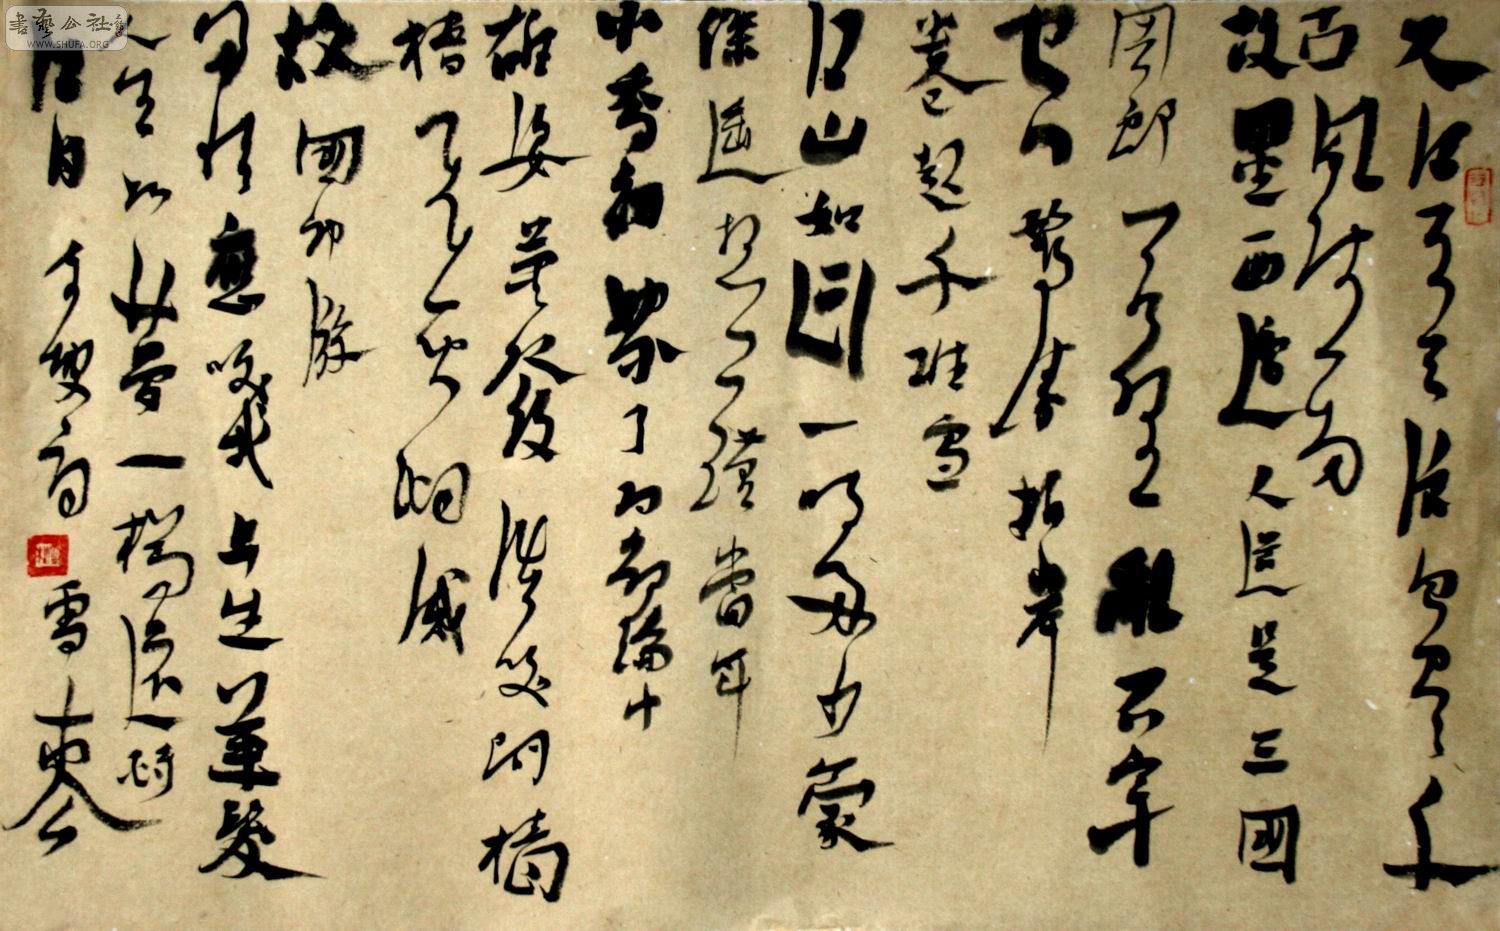 書藝公社
WWW.SHUFA.ORG
大江東去浪淘盡千
古風流人物
故壘西邊人道是三國
周郎赤壁亂石穿
空驚濤拍岸
卷起千堆雪
江山如畫一時多少豪
傑遥想公瑾當年
小喬初嫁了羽扇綸巾
雄姿英發談笑間檣
櫓灰飛煙滅
故國神游
多情應笑我早生華髮
人生如夢一樽還酹
江月